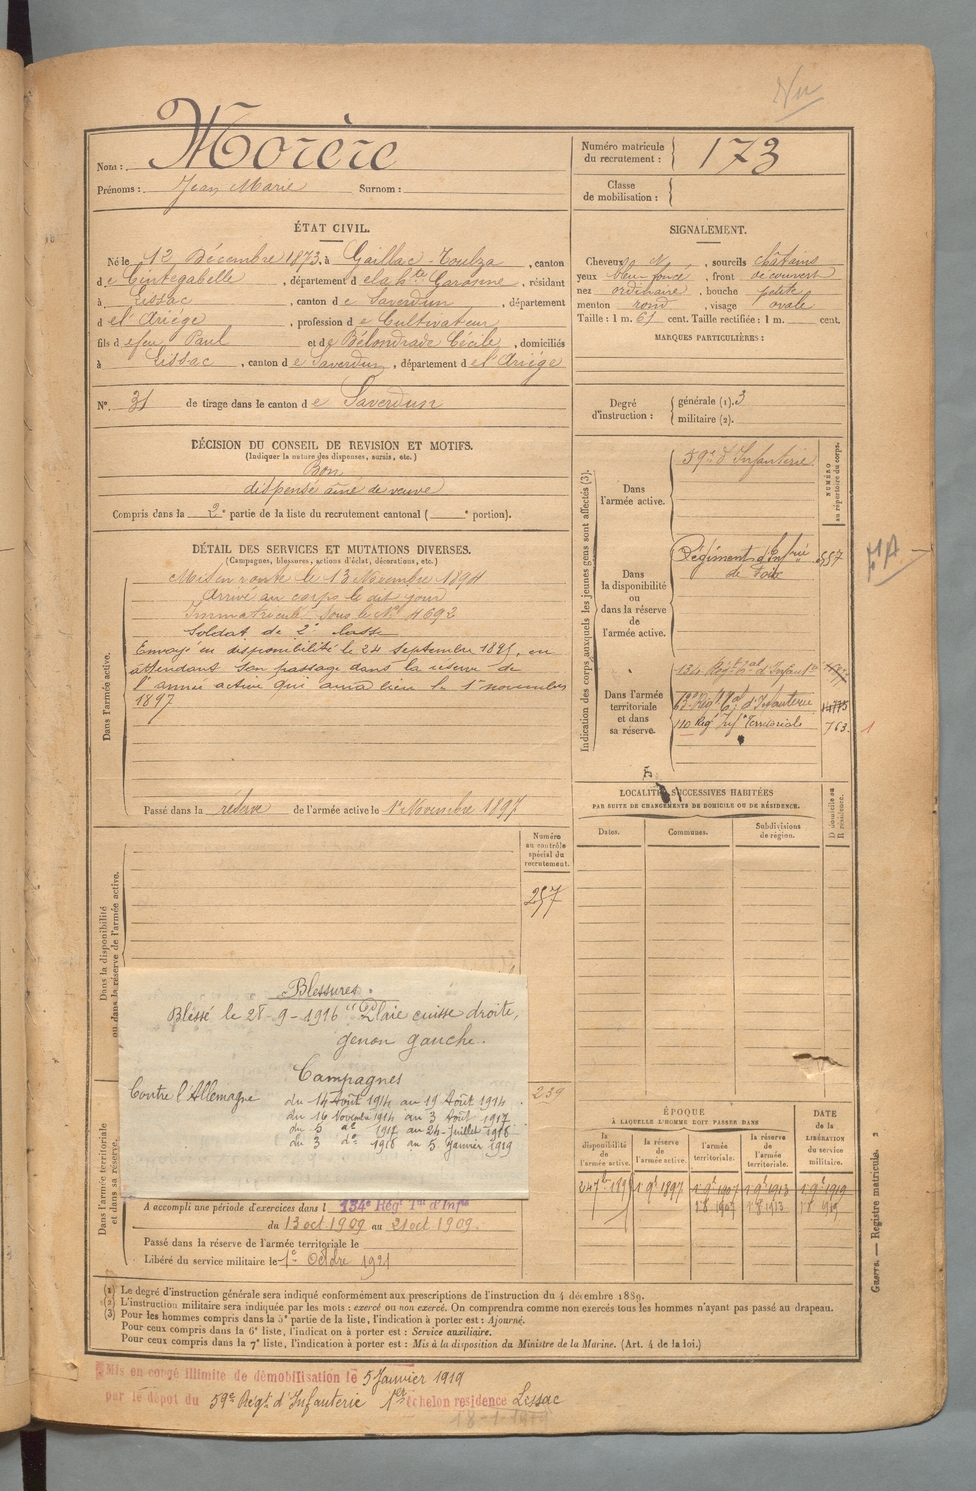 Nom : Morère
Prénoms : Jean Marie Surnom :
Numéro matricule
du recrutement : 173
Classe
de mobilisation :
ÉTAT CIVIL.
Né le 12 Décembre 1873, à Gaillac-Toulza, canton
de Cintegabelle, département de la Hte Garonne, résidant
à Lissac, canton de Saverdun, département
de l'Ariége, profession de Cultivateur
fils de feu Paul et de Bélondrade Cécile, domiciliés
à Lissac, canton de Saverdun, département de l'Ariége
N° 31 de tirage dans le canton de Saverdun
SIGNALEMENT.
Cheveux, sourcils châtains
yeux foncé, front découvert
nez ordinaire, bouche petite
menton rond, visage ovale
Taille : 1 m. 61 cent. Taille rectifiée : 1 m. cent.
MARQUES PARTICULIÈRES :
Degré
d'instruction :
générale (1). 3
militaire (2).
DÉCISION DU CONSEIL DE REVISION ET MOTIFS.
(Indiquer la nature des dispenses, sursis, etc.)
Bon
dispensé aîné de veuve
Compris dans la 2e partie de la liste du recrutement cantonal ( e portion).
DÉTAIL DES SERVICES ET MUTATIONS DIVERSES.
(Campagnes, blessures, actions d'éclat, décorations, etc.)
Dans l'armée active.
Mis en route le 13 Novembre 1894
Arrivé au corps le dit jour
Immatriculé sous le No 4692
Soldat de 2e classe
Envoyé en disponibilité le 24 septembre 1895, en
attendant son passage dans la réserve de
l'armée active qui aura lieu le 1er novembre
1897
Passé dans la réserve de l'armée active le 1er Novembre 1897
Indication des corps auxquels les jeunes gens sont affectés (3).
NUMÉRO
au répertoire du corps.
Dans
l'armée active.
59e d'Infanterie
Dans
la disponibilité
ou
dans la réserve
de
l'armée active.
Régiment d'Infrie
de Foix
557
Dans l'armée
territoriale
et dans
sa réserve.
134 Régt Tal d'Infanie
d'Infanterie
110 Regt Infie Territoriale 763
LOCALITÉS SUCCESSIVES HABITÉES
PAR SUITE DE CHANGEMENTS DE DOMICILE OU DE RÉSIDENCE.
Dates.
Communes.
Subdivisions
de région.
D domicile ou
R résidence.
Dans la disponibilité
ou dans la réserve de l'armée active.
Numéro
au contrôle
spécial du
recrutement.
257
239
Blessures.
Blessé le 28-9-1916 Plaie cuisse droite,
genou gauche.
Campagnes
Contre l'Allemagne
du 14 Août 1914 au 19 Août 1914
du 16 Novembre 1914 au 3 Août 1917
1917 au 24 Juillet 1918
du 3 do 1918 au 5 Janvier 1919
Dans l'armée territoriale
et dans sa réserve.
A accompli une période d'exercices dans l 134e Régt Tal d'Infie
du 13 oct 1909 au 21 oct 1909.
Passé dans la réserve de l'armée territoriale le
Libéré du service militaire le 1er Octbre 1921
ÉPOQUE
À LAQUELLE L'HOMME DOIT PASSER DANS
la
disponibilité
de
l'armée active.
la réserve
de
l'armée active.
l'armée
territoriale.
la réserve
de
l'armée
territoriale.
DATE
de la
LIBÉRATION
du service
militaire.
1 9e 1897 1 9e 1907 1 9e 1913 1 9e 1919
Guerre. — Registre matricule. 2
(1) Le degré d'instruction générale sera indiqué conformément aux prescriptions de l'instruction du 4 décembre 1889.
(2) L'instruction militaire sera indiquée par les mots : exercé ou non exercé. On comprendra comme non exercés tous les hommes n'ayant pas passé au drapeau.
(3) Pour les hommes compris dans la 5e partie de la liste, l'indication à porter est : Ajourné.
Pour ceux compris dans la 6e liste, l'indication à porter est : Service auxiliaire.
Pour ceux compris dans la 7e liste, l'indication à porter est : Mis à la disposition du Ministre de la Marine. (Art. 4 de la loi.)
Mis en congé illimité de démobilisation le 5 Janvier 1919
par le dépôt du 59e Régt d'Infanterie 1er échelon residence Lissac
18-1-1919